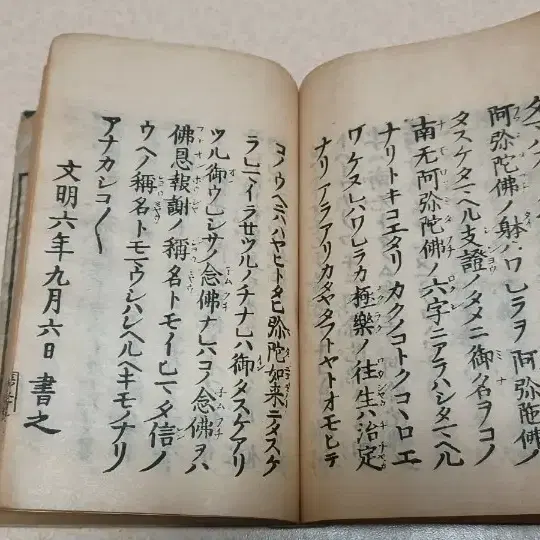 阿弥陀佛ノ躰ハワレラヲ阿弥陀佛ノ
タスケタマヘル支證ノタメニ御名ヲコノ
南无阿弥陀佛ノ六字ニアラハシタマヘル
ナリトキコエタリカクノコトクコヽロエ
ワケヌレハワレラカ極樂ノ往生ハ治定
ナリアラアリカタヤタフトヤトオモヒテ
コノウヘニハハヤヒトタヒ弥陀如来ニタスケ
ラレマイラセツルノチナレハ御タスケアリ
ツル御ウレシサノ念佛ナレハコノ念佛ヲハ
佛恩報謝ノ稱名トモイヒマタ信ノ
ウヘノ稱名トモマウシハンヘルヘキモノナリ
アナカシコ〱
文明六年九月六日書之